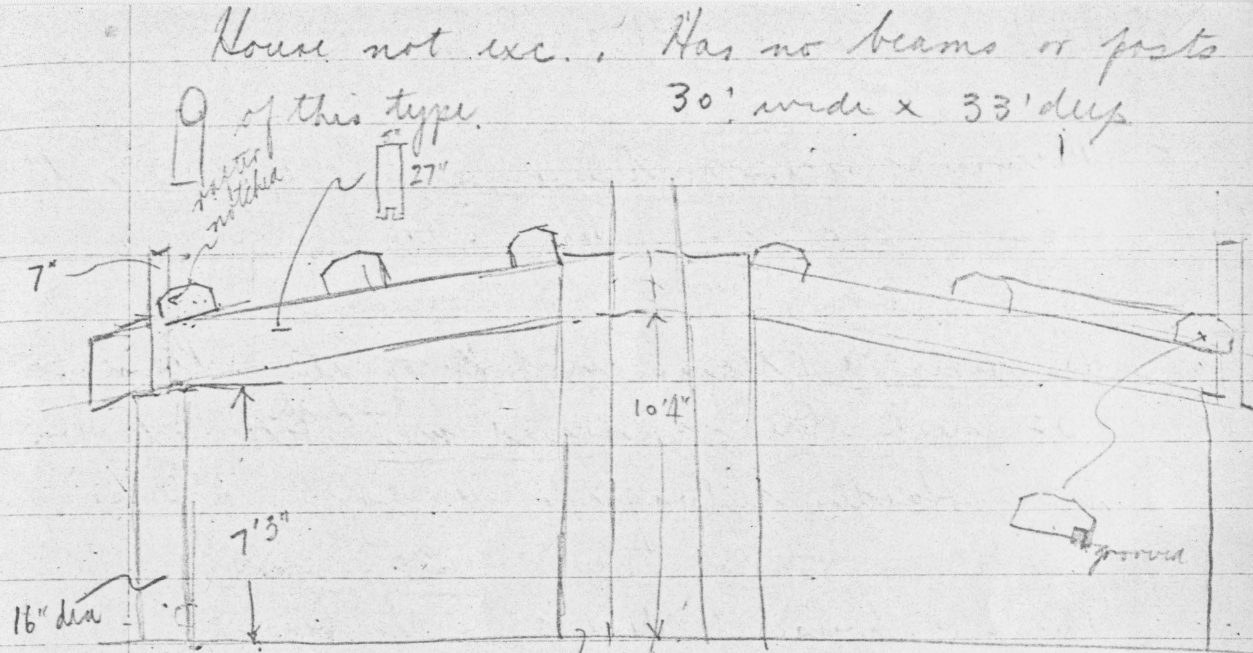 House not exc. . Has no beams or posts
of this type. 30' wide x 33' deep
notched
27"
7"
10'4"
7'3"
grooved
16" dia